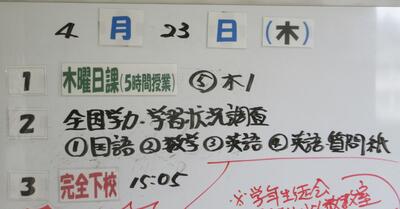 4 月 23 日 (木)
1 木曜日課(5時間授業) ⑤木1
2 全国学力・学習状況調査
①国語②数学③英語④英語質問紙
3 完全下校 15:05
※学年生徒会
教室